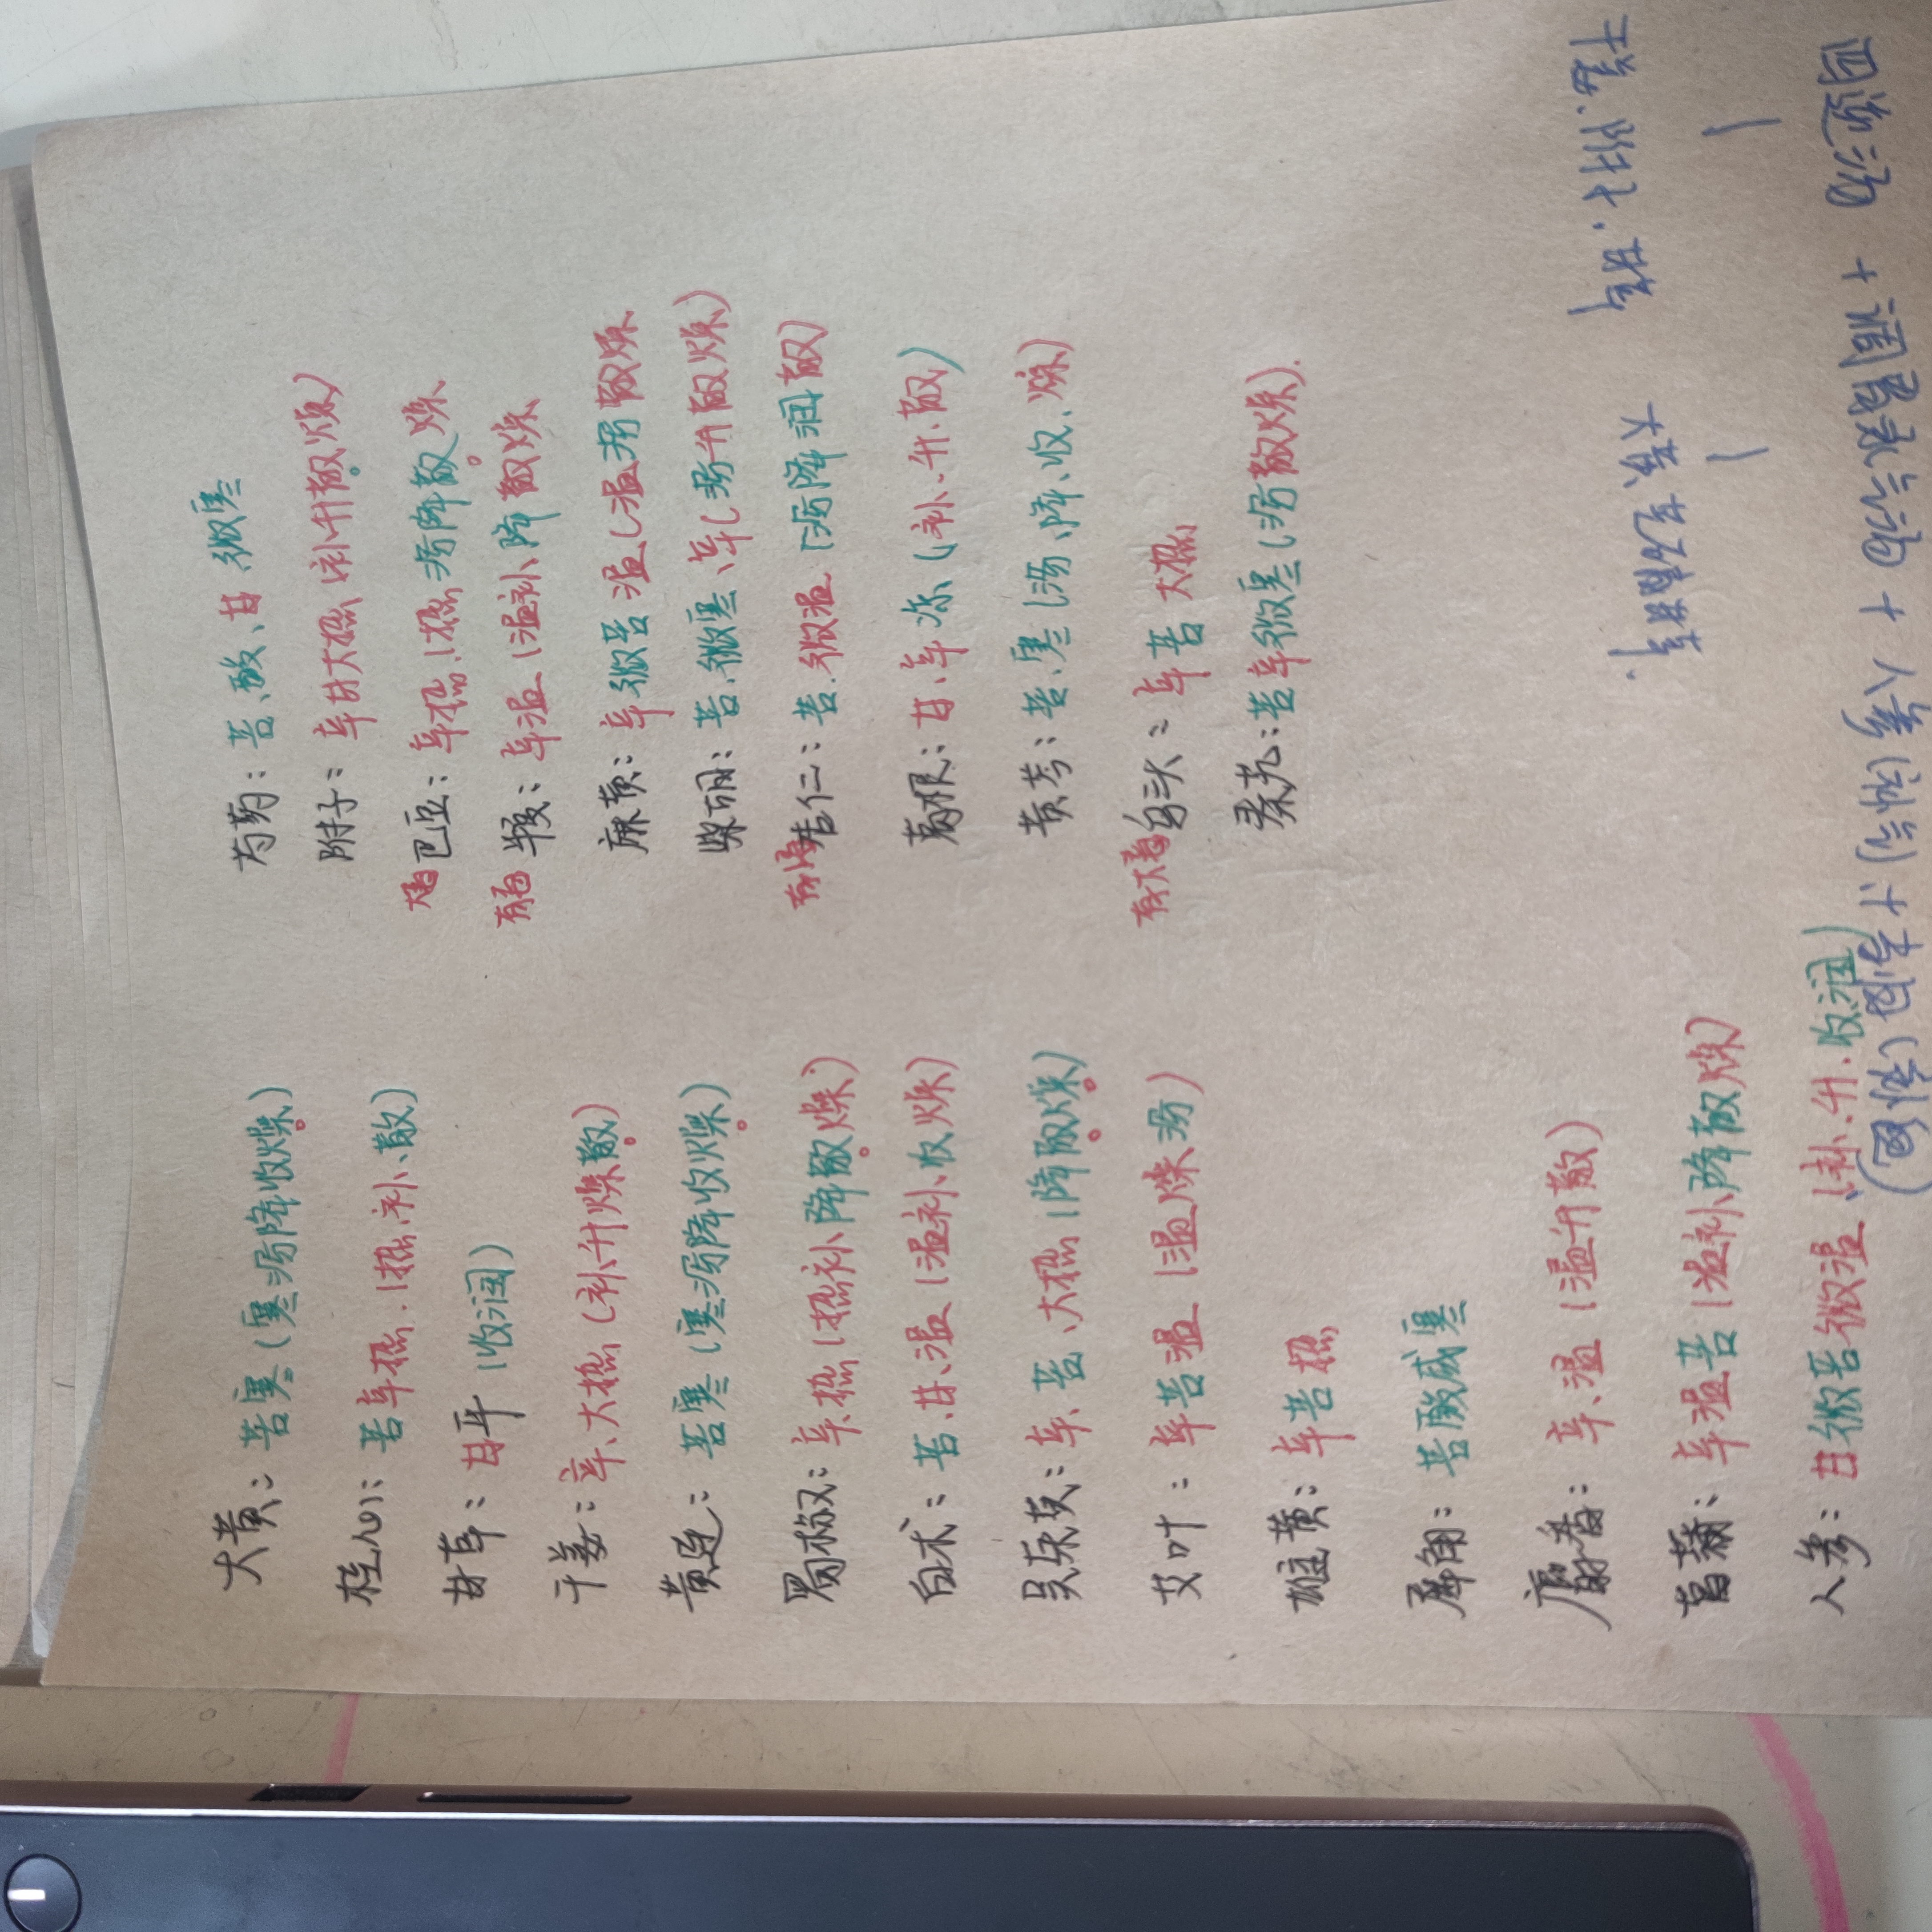 大黄：苦寒（寒泻降收燥）
桂心：苦辛热（热补、散）
甘草：甘平（收润）
干姜：辛、大热（补升燥散）
黄连：苦寒（寒泻降收燥）
蜀椒：辛、热（热补降散燥）
白术：苦、甘、温（温补收燥）
吴茱萸：辛、苦、大热（降散燥）
艾叶：辛苦温（温燥泻）
雄黄：辛苦热
犀角：苦酸咸寒
麝香：辛、温（温升散）
菖蒲：辛温苦（温补降散燥）
人参：甘微苦微温（补、升、收润）
芍药：苦、酸、甘 微寒
附子：辛甘大热（补升散燥）
巴豆：辛热（热泻降散燥
半夏：辛温（温补降散燥
麻黄：辛微苦温（温泻散燥
柴胡：苦、微寒、辛（泻升散燥）
杏仁：苦、微温（泻降润散）
葛根：甘、辛凉（补、升、散）
黄芩：苦、寒（泻、降、收、燥）
乌头：辛苦大热
秦艽：苦辛微寒（泻散燥）
干姜、附子、甘草
大黄、芒硝、甘草
四逆汤 + 调胃承气汤 + 人参（补气）